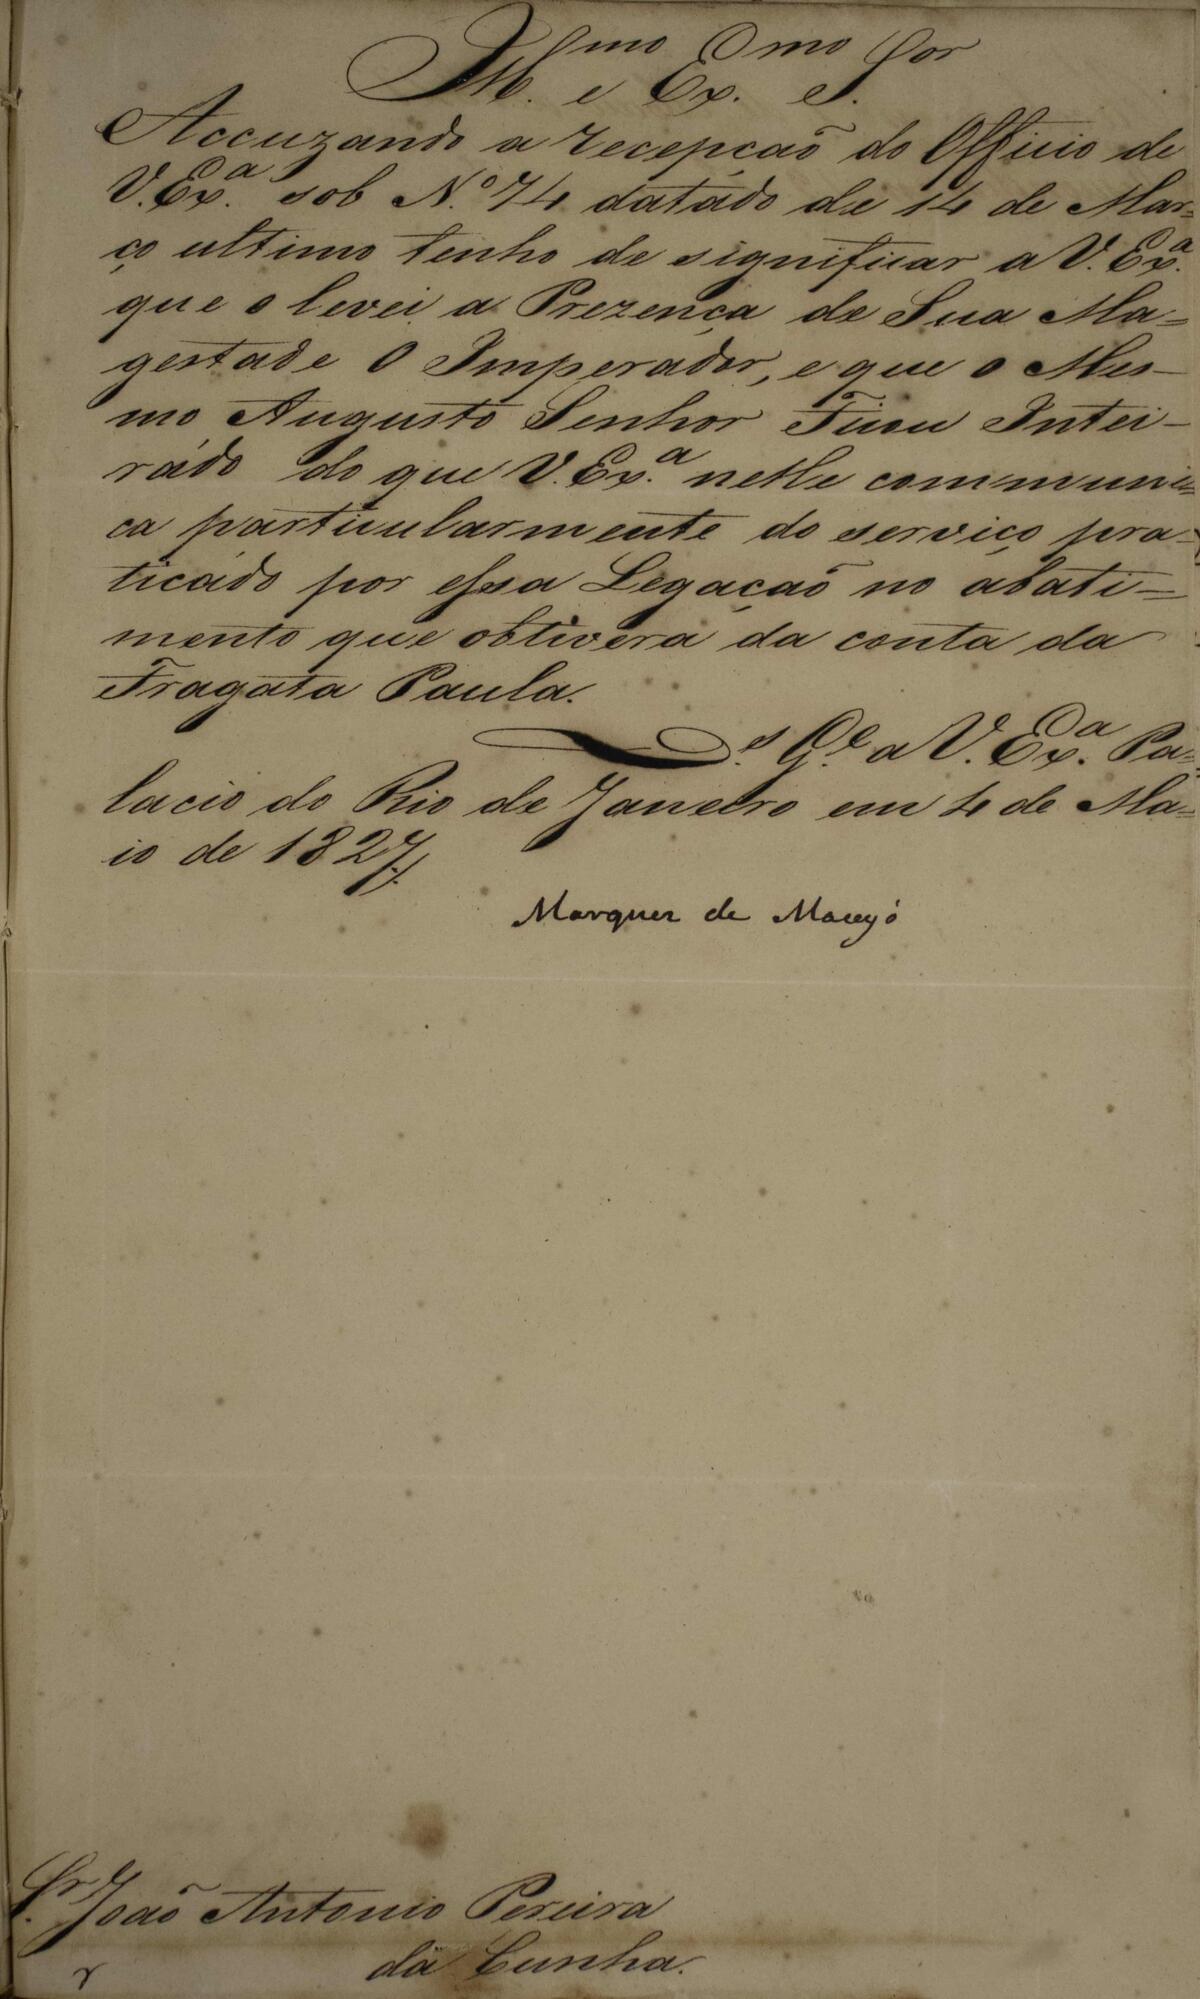 Ill.mo e Ex.mo S.or
Accuzando a recepçaõ do Officio de
V. Ex.a sob N.o 74 datado de 14 de Mar=
ço ultimo tenho de significar a V. Ex.a
que o levei a Prezença de Sua Ma=
gestade O Imperador, e que o Mes-
mo Augusto Senhor Ficou Intei-
rado do que V. Ex.a nelle communi=
ca particularmente do serviço pra-
ticado por essa Legaçaõ no abati=
mento que obtivera da conta da
Fragata Paula.
D.s G.e a V. Ex.a Pa=
lacio do Rio de Janeiro em 4 de Ma=
io de 1827.
Marquez de Maceyó
S.r Joaõ Antonio Pereira
da Cunha.